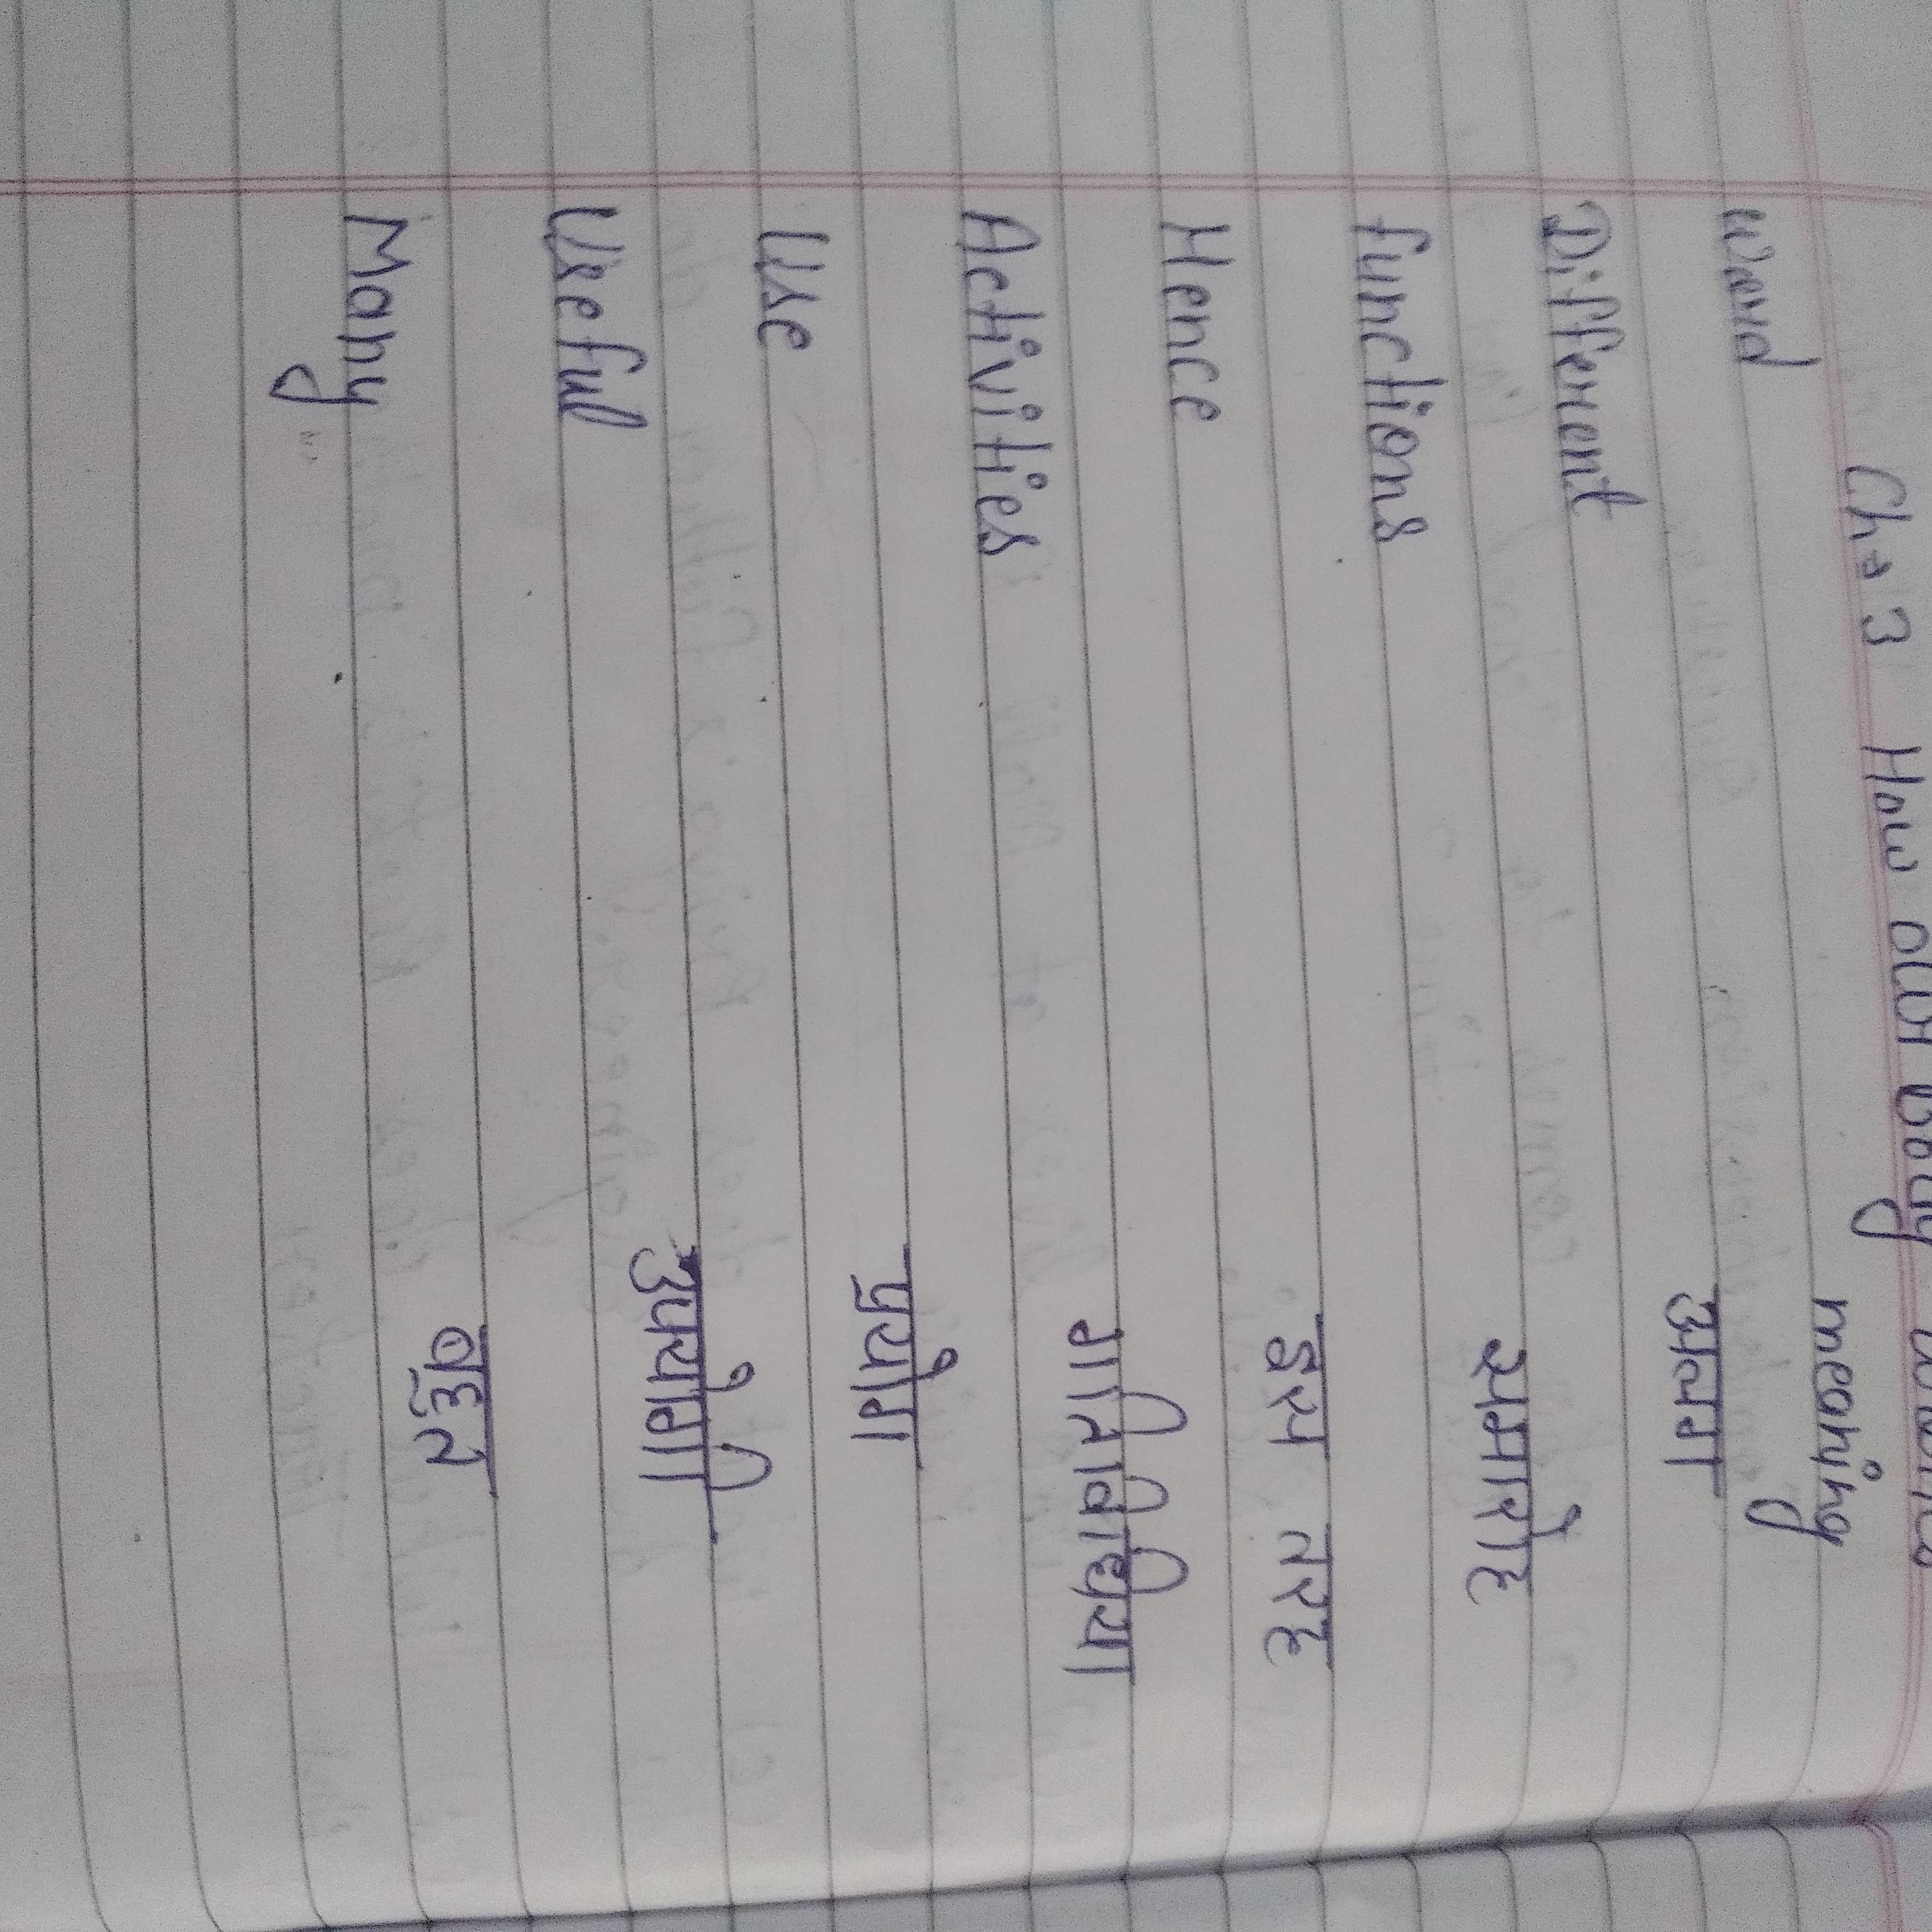 Ch-3 How our body works
Word meaning
Different अलग
functions समारोह
Hence इस तरह
Activities गतिविधिया
Use प्रयोग
Useful उपयोगी
Many बहुत